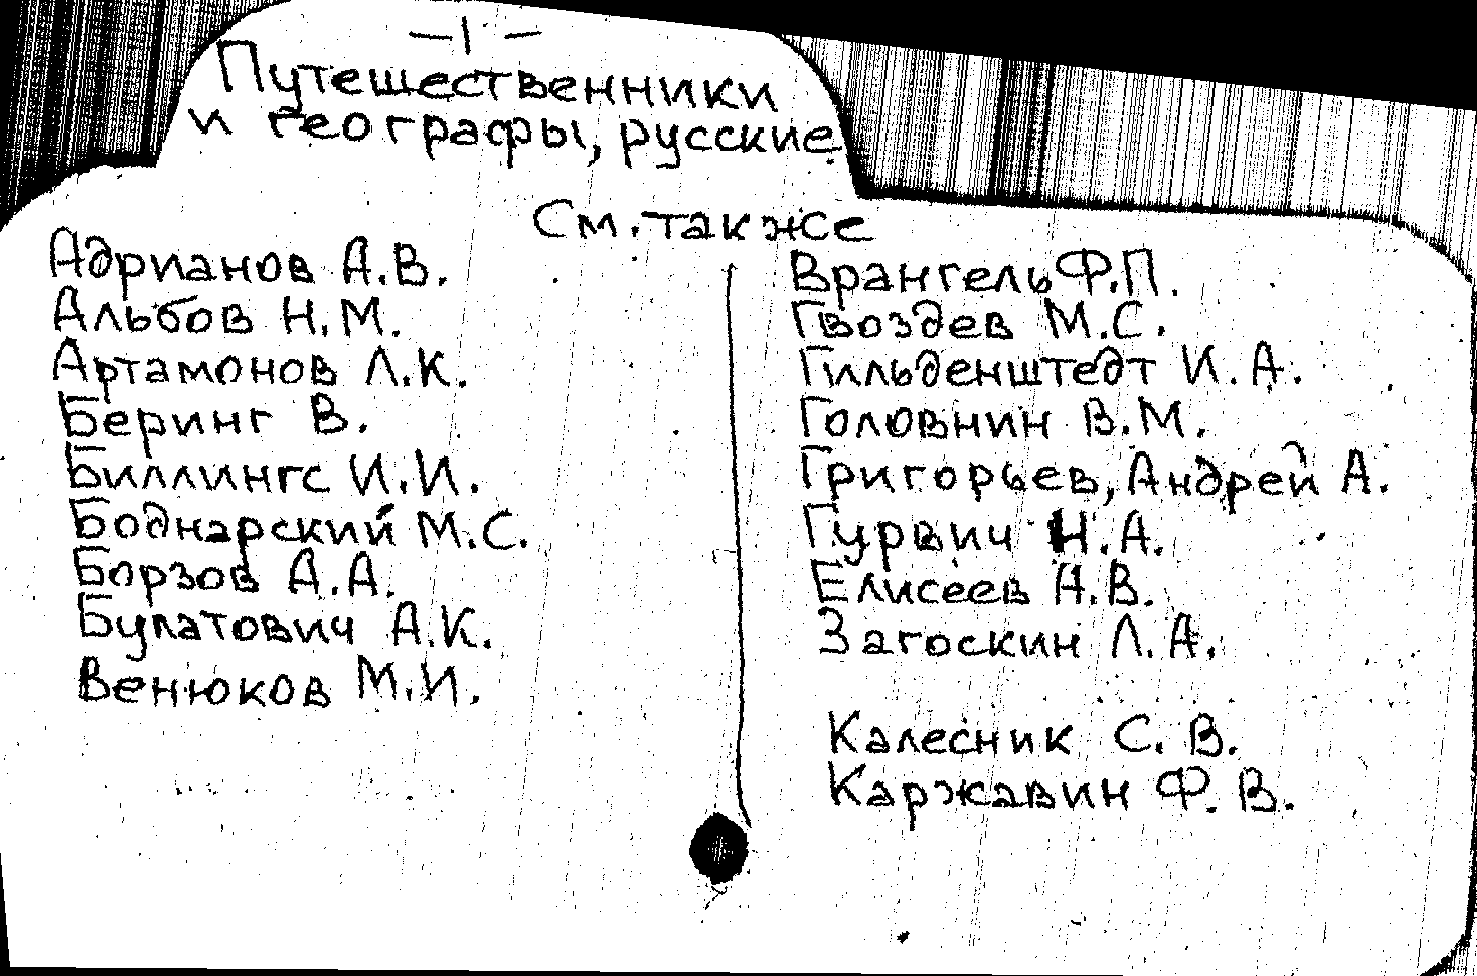 — 1 —
Путешественники
и географы, русские
См. также
Адрианов А.В.
Альбов Н.М.
Артамонов Л.К.
Беринг В.
Биллингс И.И.
Боднарский М.С.
Борзов А.А.
Булатович А.К.
Венюков М.И.
Врангель Ф.П.
Гвоздев М.С.
Гильденштедт И.А.
Головнин В.М.
Григорьев, Андрей А.
Гурвич Н.А.
Елисеев А.В.
Загоскин Л.А.
Калесник С.В.
Каржавин Ф.В.